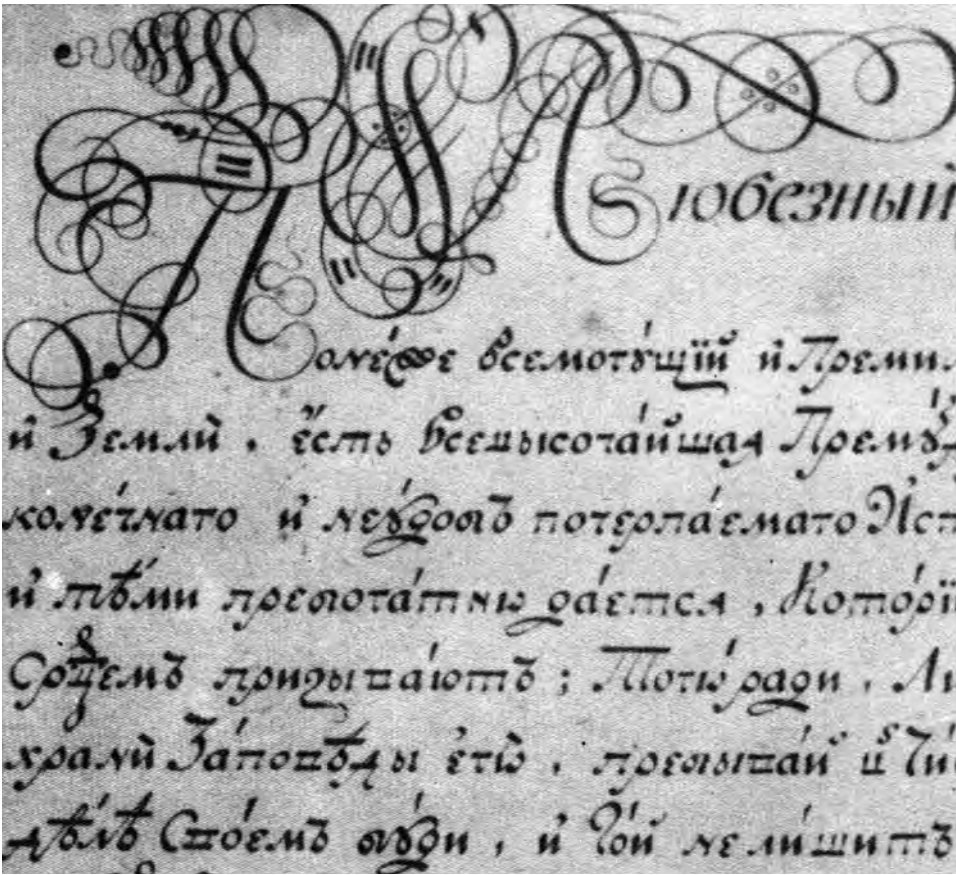 Любезный
Понéже всемогꙋщїй и҆ Премил
и҆ Земли́ , є҆́сть Всевысочáйшая Премꙋ́д
конéчнаго и҆ неꙋ́добъ почерпáемаго Ист
и҆ тѣ́ми пребогáтнѡ даéтся , Котóрїи
Срⷣцемъ призывáютъ ; Тогѡ̀ ради , Ли
храни́ Зáповѣды є҆гѡ̀ , пребывáй и҆ Чи
дѣ́лѣ Своéмъ бꙋ́ди , и҆ Той не лишитъ